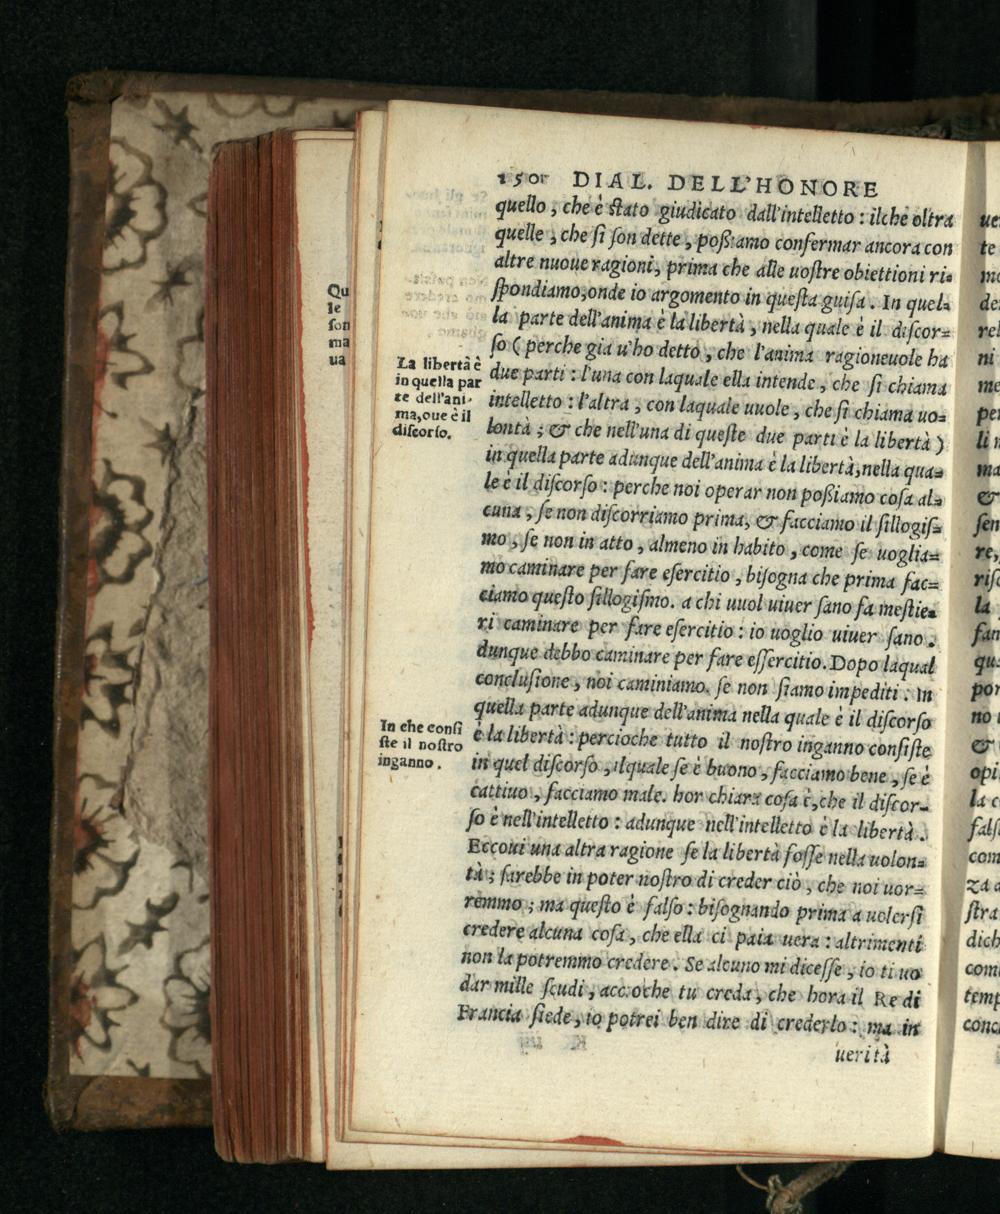 150 DIAL. DELL'HONORE
quello, che è ſtato giudicato dall'intelletto: ilche oltra
quelle, che ſi ſon dette, poßiamo confermar ancora con
altre nuoue ragioni, prima che alle uoſtre obiettioni ri=
ſpondiamo, onde io argomento in queſta guiſa. In quel=
la parte dell'anima è la libertà, nella quale è il diſcor=
ſo (perche gia u'ho detto, che l'anima ragioneuole ha
due parti: l'una con laquale ella intende, che ſi chiama
intelletto: l'altra, con laquale uuole, che ſi chiama uo=
lontà; & che nell'una di queſte due parti è la libertà)
in quella parte adunque dell'anima è la libertà, nella qua=
le è il diſcorſo: perche noi operar non poßiamo coſa al=
cuna, ſe non diſcorriamo prima, & facciamo il ſillogiſ=
mo, ſe non in atto, almeno in habito, come ſe uoglia=
mo caminare per fare eſercitio, biſogna che prima fac=
ciamo queſto ſillogiſmo. a chi uuol uiuer ſano fa meſtie=
ri caminare per fare eſercitio: io uoglio uiuer ſano.
dunque debbo caminare per fare eſſercitio. Dopo laqual
concluſione, noi caminiamo. ſe non ſiamo impediti. In
quella parte adunque dell'anima nella quale è il diſcorſo
è la libertà: percioche tutto il noſtro inganno conſiſte
in quel diſcorſo, ilquale ſe è buono, facciamo bene, ſe è
cattiuo, facciamo male. hor chiara coſa è, che il diſcor=
ſo è nell'intelletto: adunque nell'intelletto è la libertà.
Eccoui una altra ragione ſe la libertà foſſe nella uolon=
tà; ſarebbe in poter noſtro di creder ciò, che noi uor=
remmo; ma queſto è falſo: biſognando prima a uolerſi
credere alcuna coſa, che ella ci paia uera: altrimenti
non la potremmo credere. Se alcuno mi diceſſe, io ti uo
dar mille ſcudi, accioche tu creda, che hora il Re di
Francia ſiede, io potrei ben dire di crederlo: ma in
uerità
La libertà è
in quella par
te dell'ani-
ma, oue è il
diſcorſo.
In che conſi
ſte il noſtro
inganno.
Qu
le
ſon
ma
ua
ue
te
mo
de
rel
ni
me
per
li n
ma
&
ſen
re,
riſc
la
fan
qu
por
no
&
opi
la c
falſ
com
za a
ſtra
dich
com
temp
conc